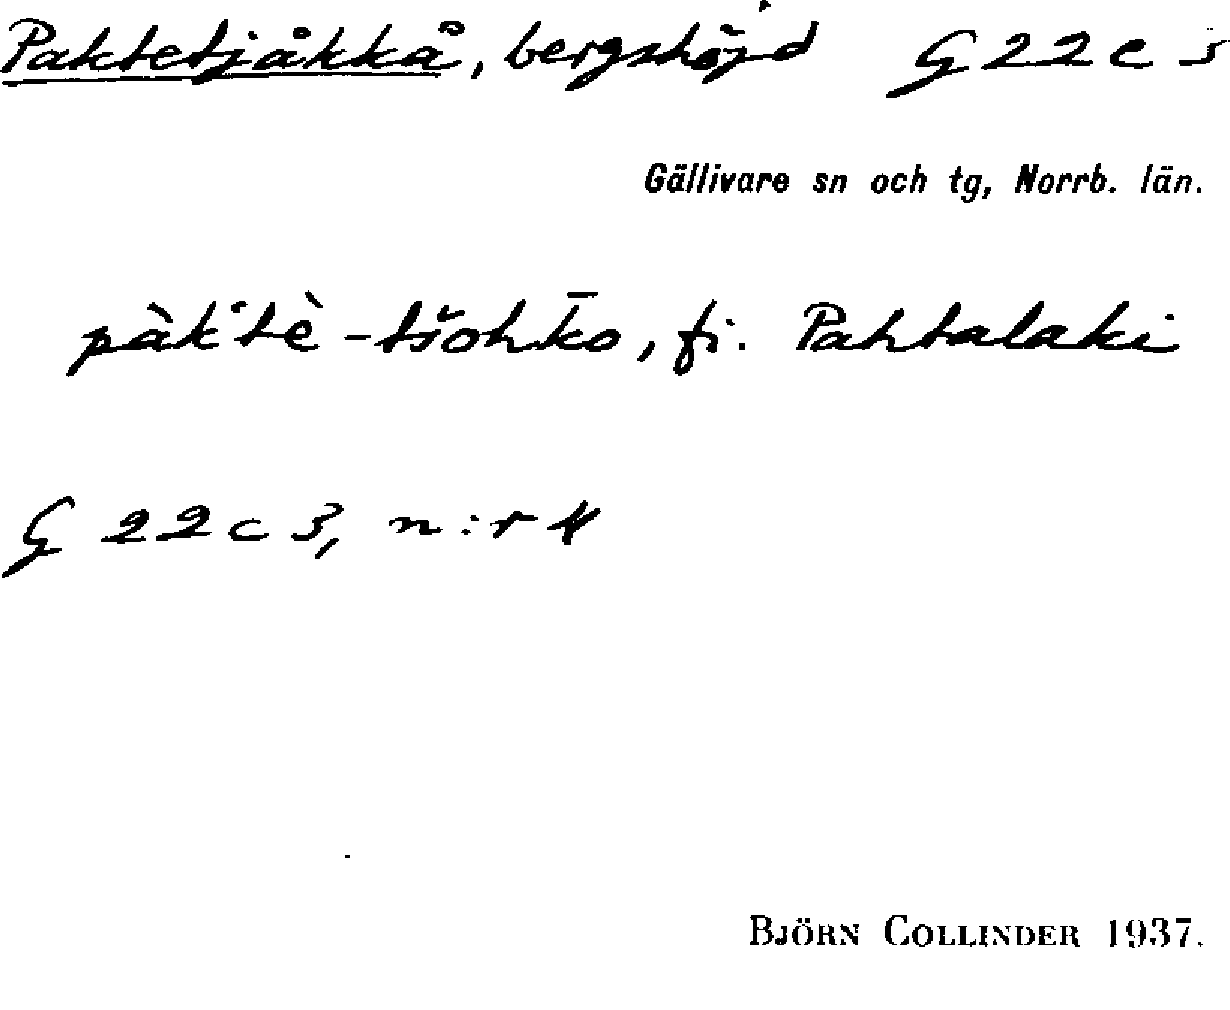 Paktetjåkkå, bergshöjd G 22 c 3
Gällivare sn och tg, Norrb. län.
pàk'tè -tšohk̄o, fi. Pahtalaki
G 22 c 3, n:r 4
BJÖRN COLLINDER 1937.